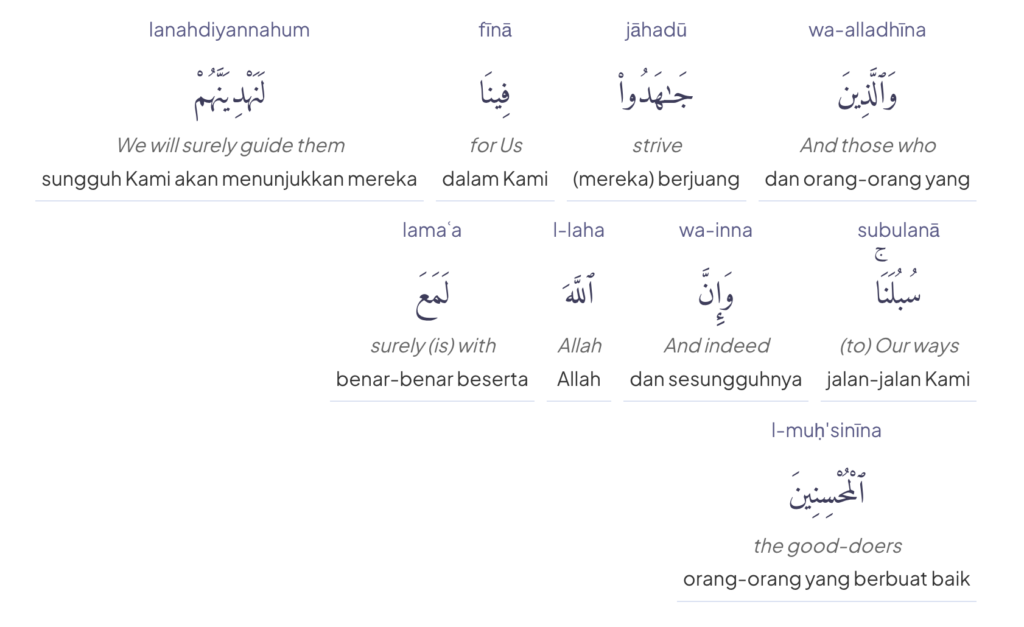 wa-alladhīna jāhadū fīnā lanahdiyannahum
وَٱلَّذِينَ جَـٰهَدُوا۟ فِينَا لَنَهْدِيَنَّهُمْ
And those who strive for Us We will surely guide them
dan orang-orang yang (mereka) berjuang dalam Kami sungguh Kami akan menunjukkan mereka
subulanā wa-inna l-laha lamaʿa
سُبُلَنَا ۚ وَإِنَّ ٱللَّهَ لَمَعَ
(to) Our ways And indeed Allah surely (is) with
jalan-jalan Kami dan sesungguhnya Allah benar-benar beserta
l-muḥ'sinīna
ٱلْمُحْسِنِينَ
the good-doers
orang-orang yang berbuat baik